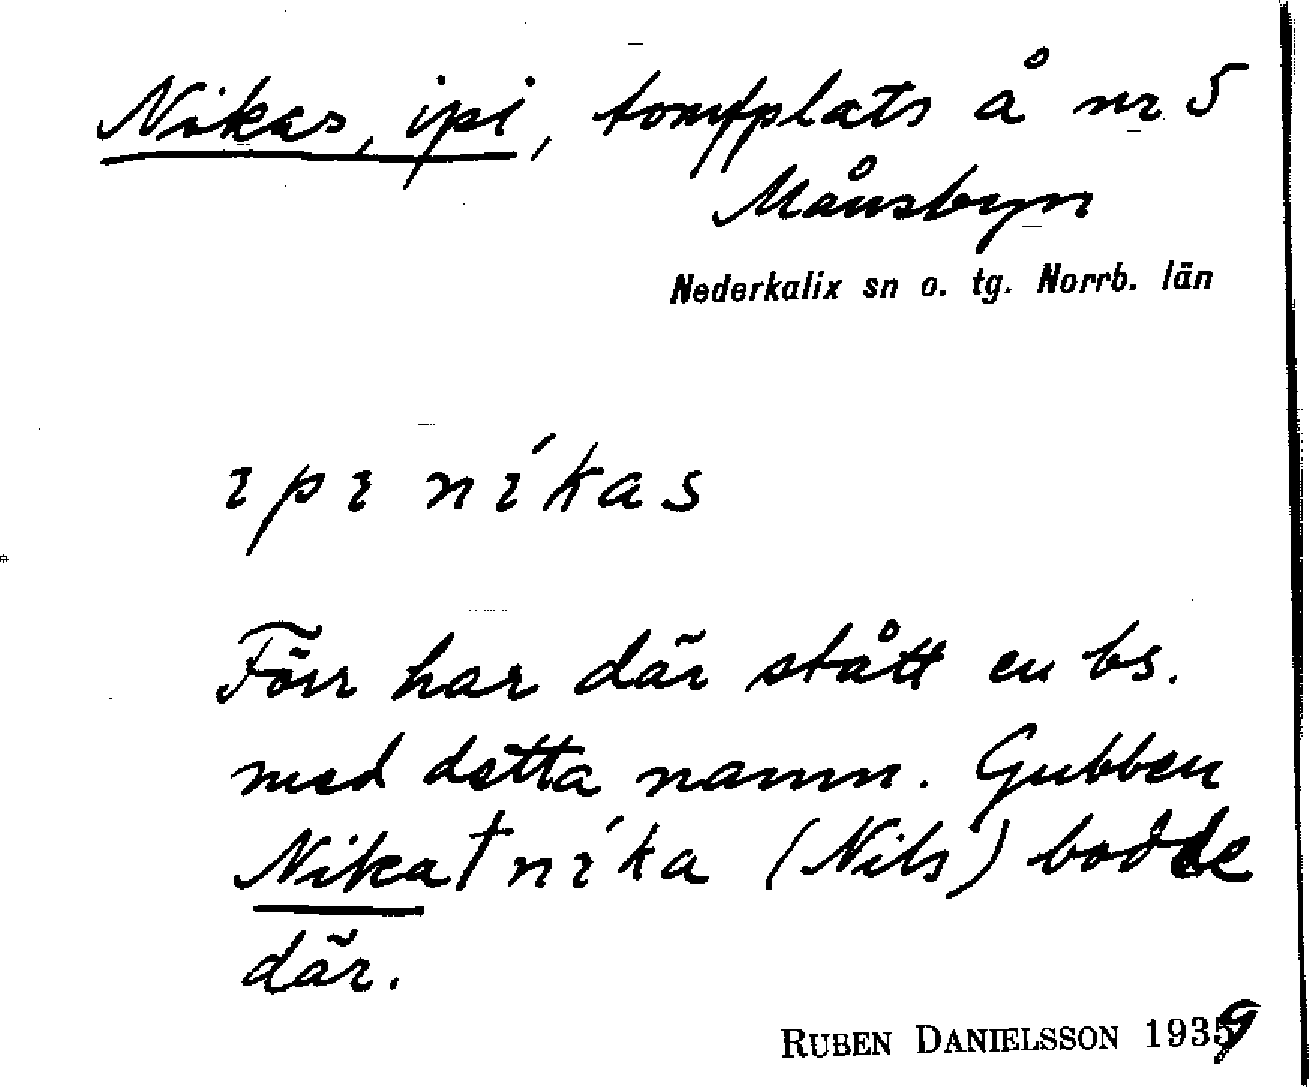 Nikas, ipi, tomtplats å nr 5
Månsbyn
Nederkalix sn o. tg. Norrb. län
ɪpɪ nɪ́kas
Förr har där stått en bs.
med detta namn. Gubben
Nika † nɪ́ka (Nils) bodde
där.
RUBEN DANIELSSON 1939